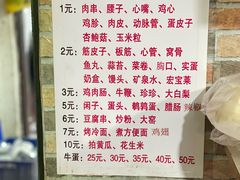 1元：肉串、腰子、心嘴、鸡心
鸡胗、肉皮、动脉管、蛋皮子
杏鲍菇、玉米粒
2元：筋皮子、板筋、心管、窝骨
鱼丸、蒜苔、菜卷、胸口、实蛋
奶盒、馒头、矿泉水、宏宝莱
3元：鸡肉肠、牛鞭、珍珍、大白梨
5元：闲子、蛋头、鹌鹑蛋、腊肠 辣椒
6元：豆腐串、炒粉、大窑
7元：烤冷面、煮方便面 鸡翅
10元：拍黄瓜、花生米
牛蛋：25元、30元、35元、40元、50元